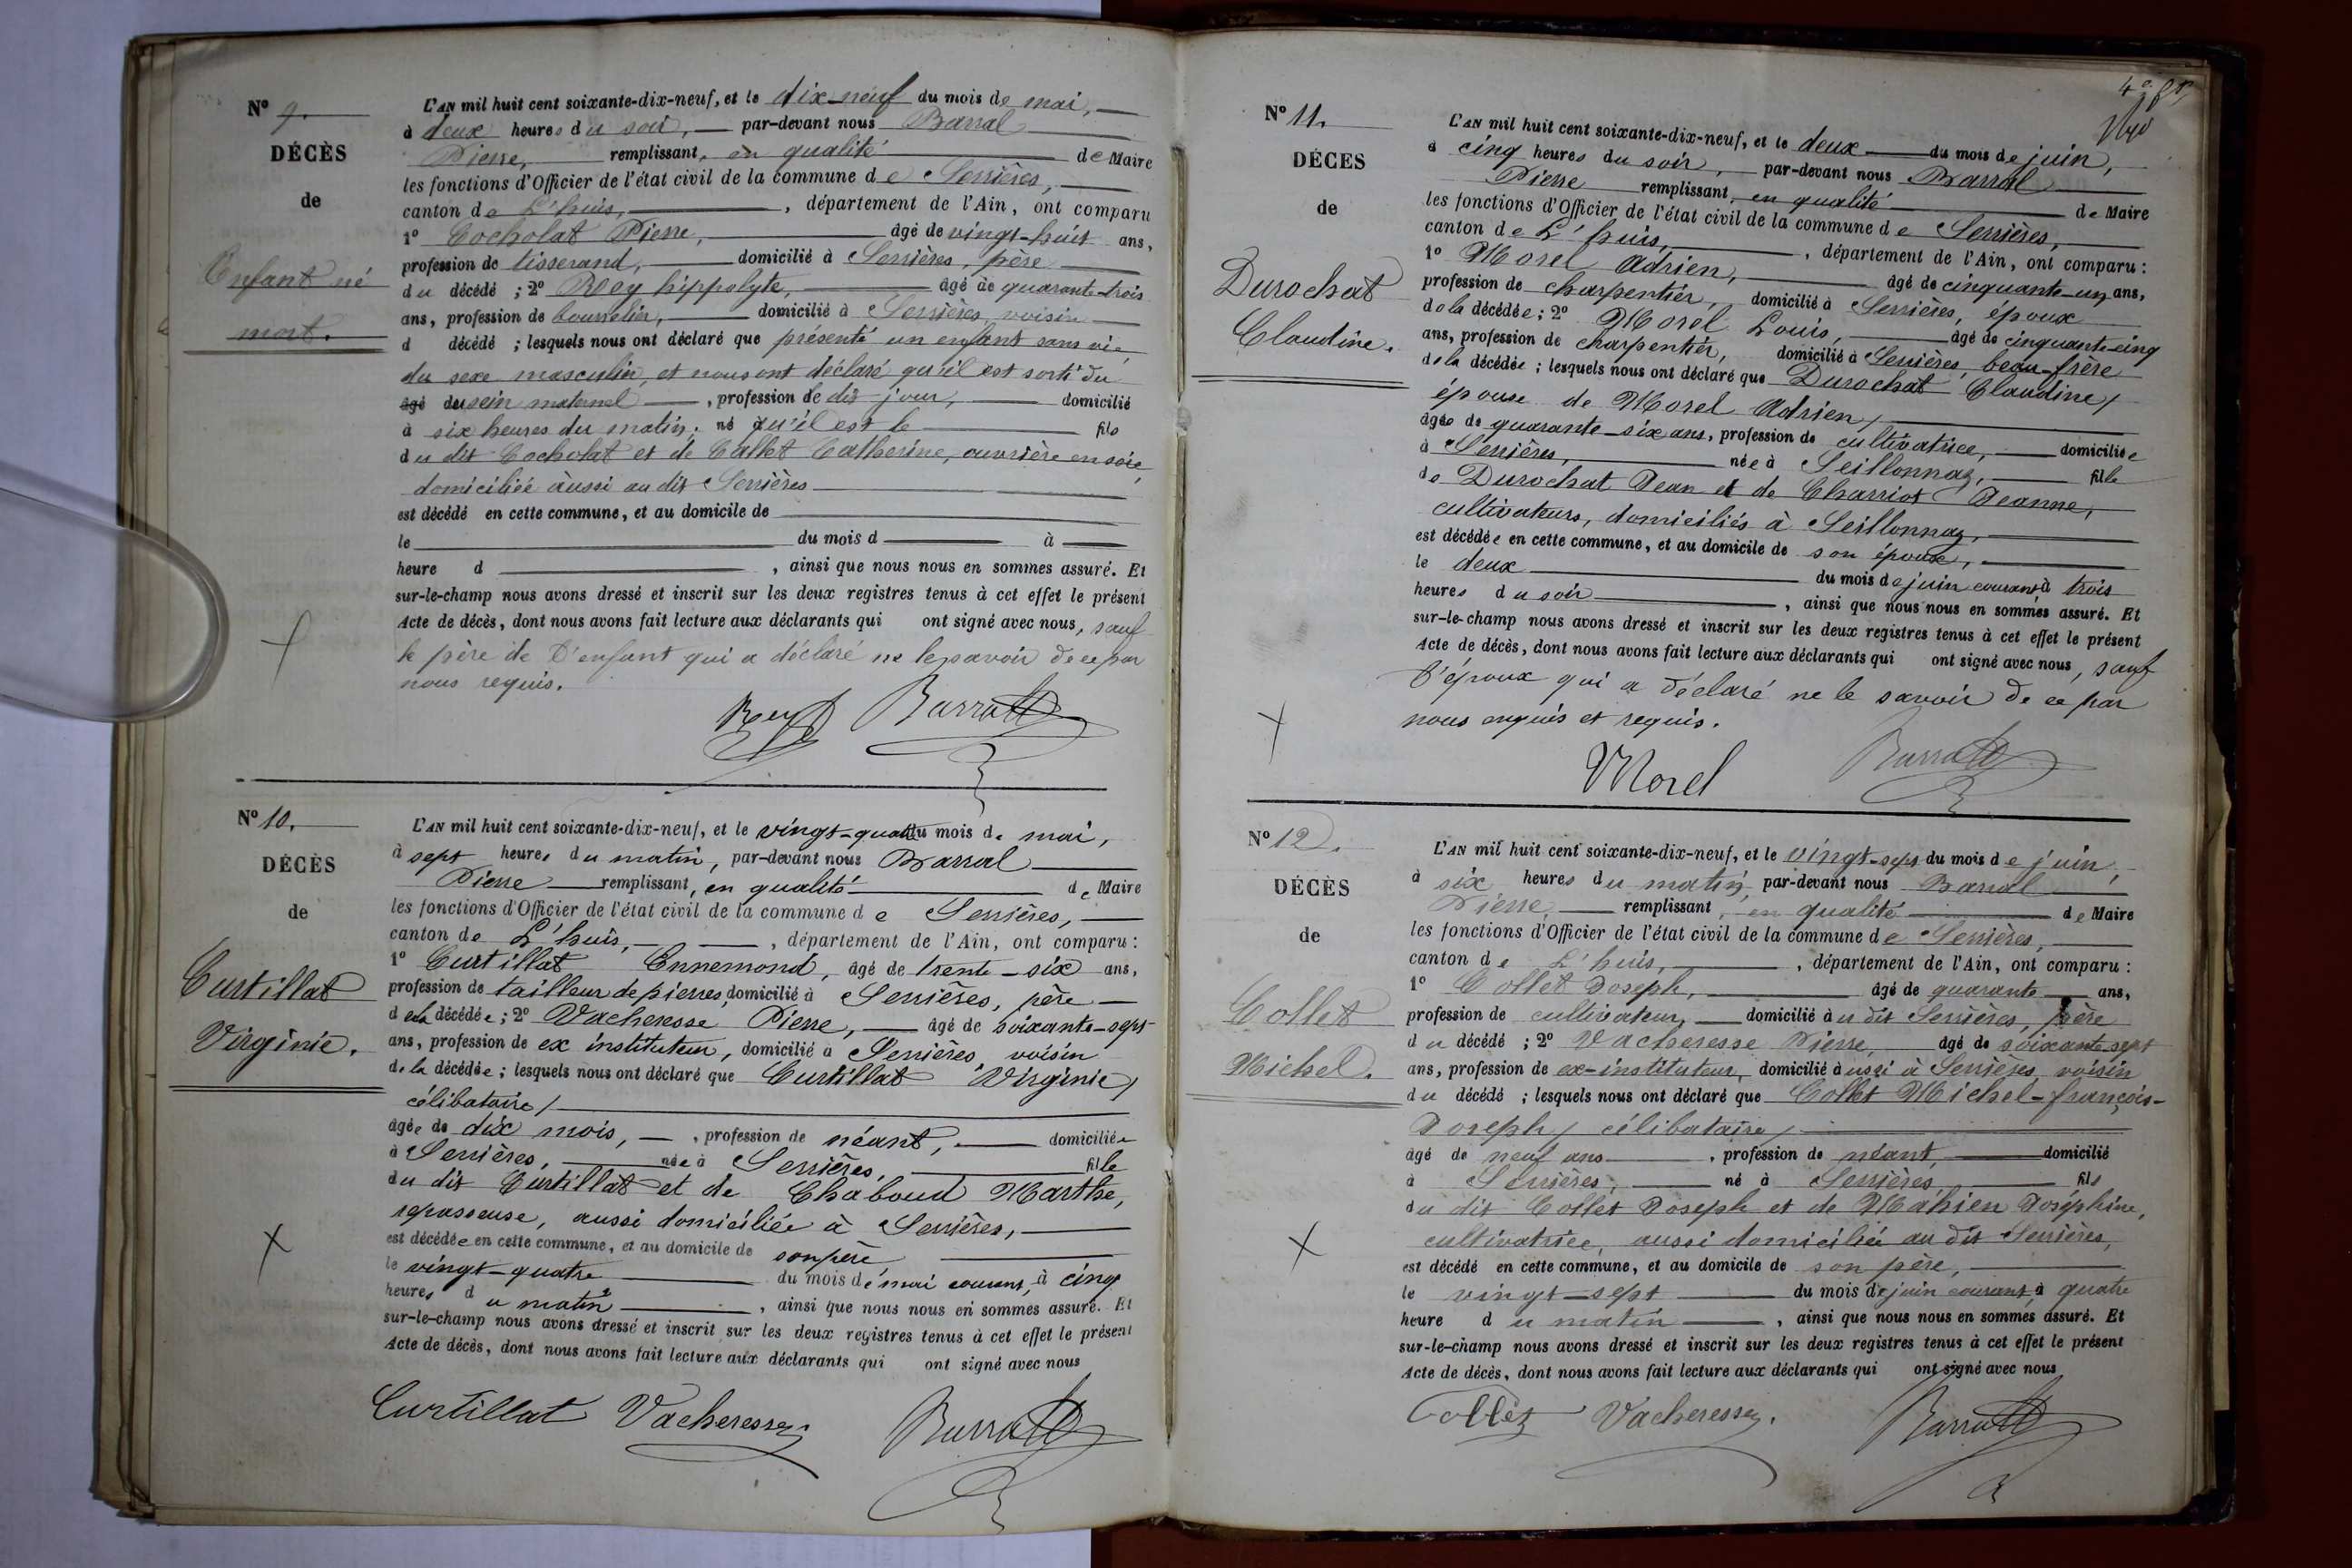 Nº 9.
DÉCÈS
de
Enfant né
mort.
L'AN mil huit cent soixante-dix-neuf, et le dix-neuf du mois de mai,
à deux heures du soir, par-devant nous Barral
Pierre, remplissant, en qualité de Maire
les fonctions d'Officier de l'état civil de la commune de Serrières,
canton de L'huis, , département de l'Ain, ont comparu
1º Cocholat Pierre, âgé de vingt-huit ans,
profession de tisserand, domicilié à Serrières, père
du décédé ; 2º Rey hippolyte, âgé de quarante-trois
ans, profession de bourrelier, domicilié à Serrières, voisin
d décédé ; lesquels nous ont déclaré que présenté un enfant sans vie,
du sexe masculin, et nous ont déclaré qu'il est sorti du
âgé du sein maternel , profession de dit jour, domicilié
à six heures du matin. né qu'il est le fils
du dit Cocholat et de Callet Catherine, ouvrière en soie,
domiciliée aussi au dit Serrières
est décédé en cette commune, et au domicile de
le du mois d à
heure d , ainsi que nous nous en sommes assuré. Et
sur-le-champ nous avons dressé et inscrit sur les deux registres tenus à cet effet le présent
Acte de décès, dont nous avons fait lecture aux déclarants qui ont signé avec nous, sauf
le père de l'enfant qui a déclaré ne le savoir de ce par
nous requis.
Rey Barral
Nº 10.
DÉCÈS
de
Curtillat
Virginie.
L'AN mil huit cent soixante-dix-neuf, et le vingt-quatre du mois de mai,
à sept heures du matin, par-devant nous Barral
Pierre remplissant, en qualité de Maire
les fonctions d'Officier de l'état civil de la commune de Serrières,
canton de L'huis, , département de l'Ain, ont comparu :
1º Curtillat Ennemond, âgé de trente-six ans,
profession de tailleur de pierres, domicilié à Serrières, père
de la décédée ; 2º Vacheresse Pierre, âgé de soixante-sept
ans, profession de ex instituteur, domicilié à Serrières, voisin
de la décédée ; lesquels nous ont déclaré que Curtillat Virginie/
célibataire/
âgée de dix mois, , profession de néant, domiciliée
à Serrières, née à Serrières, fille
du dit Curtillat et de Chaboud Marthe,
repasseuse, aussi domiciliée à Serrières,
est décédée en cette commune, et au domicile de son père
le vingt-quatre du mois de mai courant, à cinq
heures du matin , ainsi que nous nous en sommes assuré. Et
sur-le-champ nous avons dressé et inscrit sur les deux registres tenus à cet effet le présent
Acte de décès, dont nous avons fait lecture aux déclarants qui ont signé avec nous
Curtillat Vacheresse Barral
Nº 11.
DÉCÈS
de
Durochat
Claudine.
L'AN mil huit cent soixante-dix-neuf, et le deux du mois de juin,
à cinq heures du soir, par-devant nous Barral
Pierre remplissant, en qualité de Maire
les fonctions d'Officier de l'état civil de la commune de Serrières,
canton de L'huis, , département de l'Ain, ont comparu :
1º Morel Adrien, âgé de cinquante-un ans,
profession de charpentier, domicilié à Serrières, époux
de la décédée ; 2º Morel Louis, âgé de cinquante-cinq
ans, profession de charpentier, domicilié à Serrières, beau-frère
de la décédée ; lesquels nous ont déclaré que Durochat Claudine/
épouse de Morel Adrien/
âgée de quarante-six ans, profession de cultivatrice, domiciliée
à Serrières, née à Seillonnaz, fille
de Durochat Jean et de Charriot Jeanne,
cultivateurs, domiciliés à Seillonnaz,
est décédée en cette commune, et au domicile de son époux,
le deux du mois de juin courant, à trois
heures du soir , ainsi que nous nous en sommes assuré. Et
sur-le-champ nous avons dressé et inscrit sur les deux registres tenus à cet effet le présent
Acte de décès, dont nous avons fait lecture aux déclarants qui ont signé avec nous, sauf
l'époux qui a déclaré ne le savoir de ce par
nous enquis et requis.
Morel Barral
Nº 12.
DÉCÈS
de
Collet
Michel.
L'AN mil huit cent soixante-dix-neuf, et le vingt-sept du mois de juin,
à six heures du matin, par-devant nous Barral
Pierre, remplissant, en qualité de Maire
les fonctions d'Officier de l'état civil de la commune de Serrières,
canton de L'huis, , département de l'Ain, ont comparu :
1º Collet Joseph, âgé de quarante ans,
profession de cultivateur, domicilié au dit Serrières, père
du décédé ; 2º Vacheresse Pierre, âgé de soixante-sept
ans, profession de ex-instituteur, domicilié aussi à Serrières, voisin
du décédé ; lesquels nous ont déclaré que Collet Michel-françois-
Joseph/ célibataire/
âgé de neuf ans , profession de néant, domicilié
à Serrières, né à Serrières, fils
du dit Collet Joseph et de Mahien Joséphine,
cultivatrice, aussi domiciliée au dit Serrières,
est décédé en cette commune, et au domicile de son père,
le vingt-sept du mois de juin courant, à quatre
heure du matin , ainsi que nous nous en sommes assuré. Et
sur-le-champ nous avons dressé et inscrit sur les deux registres tenus à cet effet le présent
Acte de décès, dont nous avons fait lecture aux déclarants qui ont signé avec nous
Collet Vacheresse. Barral